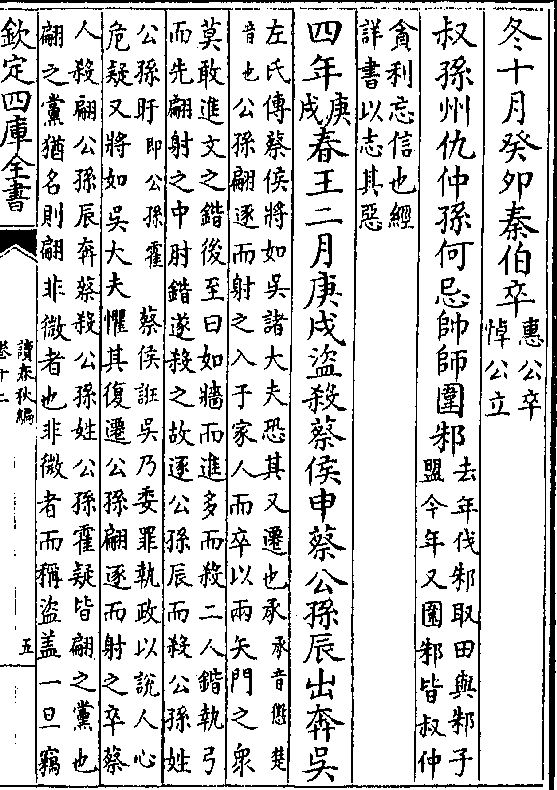 冬十月癸卯秦伯卒惠公卒
悼公立
叔孫州仇仲孫何忌帥師圍邾去年伐邾取田與邾子
盟今年又圍邾皆叔仲
貪利忘信也經
詳書以志其惡
四年庚
戌春王二月庚戌盜殺蔡侯申蔡公孫辰出奔吳
左氏傳蔡侯將如吳諸大夫恐其又遷也承承音懲楚
音也公孫翩逐而射之入于家人而卒以兩矢門之衆
莫敢進文之鍇後至曰如牆而進多而殺二人鍇執弓
而先翩射之中肘鍇遂殺之故逐公孫辰而殺公孫姓
公孫盱即公孫霍蔡侯誑吳乃委罪執政以說人心
危疑又將如吳大夫懼其復遷公孫翩逐而射之卒蔡
人殺翩公孫辰奔蔡殺公孫姓公孫霍疑皆翩之黨也
翩之黨猶名則翩非微者也非微者而稱盜盖一旦竊
欽定四庫全書
讀春秋編
卷十二
五